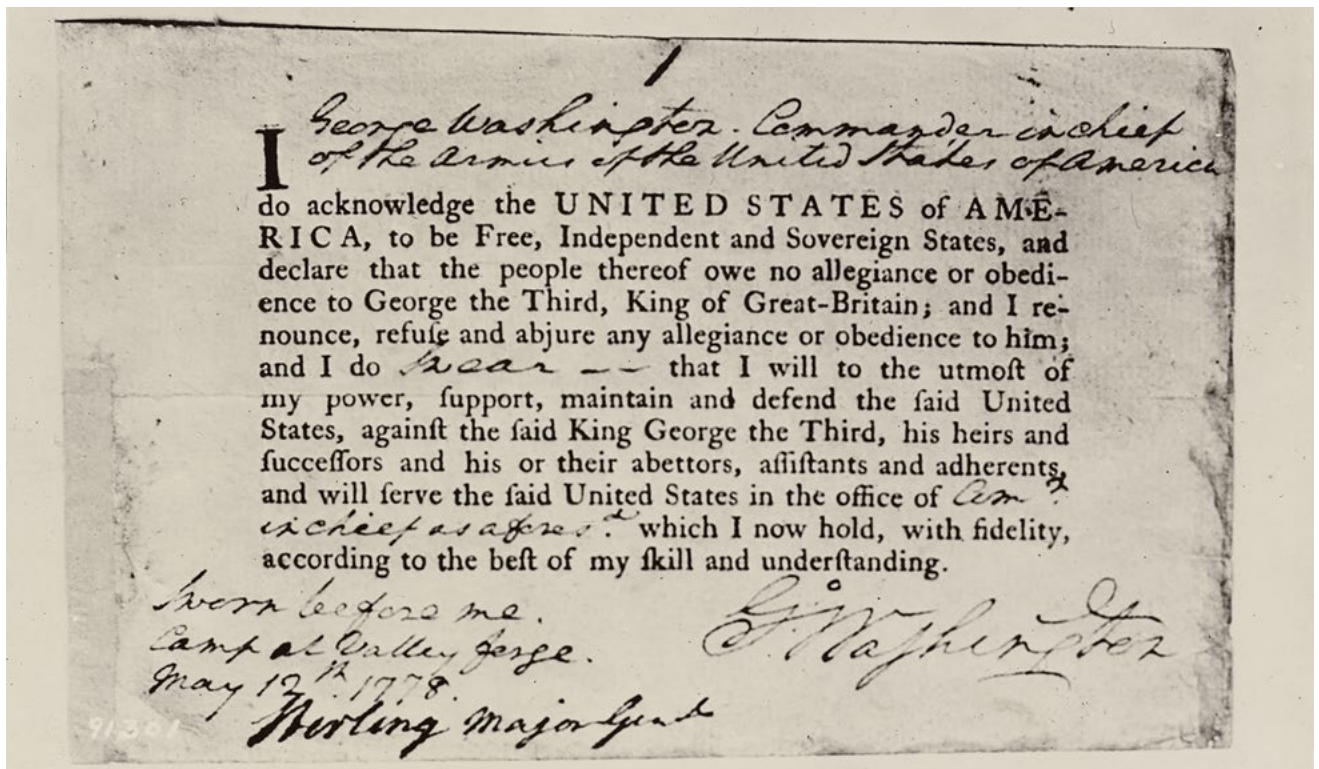 I George Washington. Commander in chief
of the Armies of the United States of America
do acknowledge the UNITED STATES of AME-
RICA, to be Free, Independent and Sovereign States, and
declare that the people thereof owe no allegiance or obedi-
ence to George the Third, King of Great-Britain; and I re-
nounce, refuſe and abjure any allegiance or obedience to him;
and I do swear — — that I will to the utmoſt of
my power, ſupport, maintain and defend the ſaid United
States, againſt the ſaid King George the Third, his heirs and
ſucceſſors and his or their abettors, aſſiſtants and adherents,
and will ſerve the ſaid United States in the office of Comr.
in chief as aforesd. which I now hold, with fidelity,
according to the beſt of my ſkill and underſtanding.
Sworn before me.
Camp at Valley forge.
May 12th. 1778.
Go. Washington
Stirling Major Genl
91301